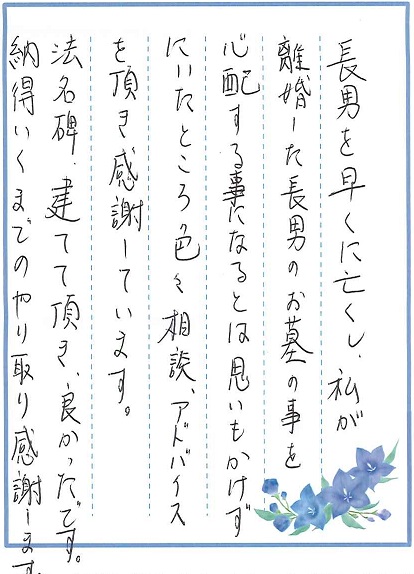 長男を早くに亡くし、私が
離婚した長男のお墓の事を
心配する事になるとは思いもかけず
にいたところ色々相談、アドバイス
を頂き感謝しています。
法名碑、建てて頂き、良かったです。
納得いくまでのやり取り感謝します。